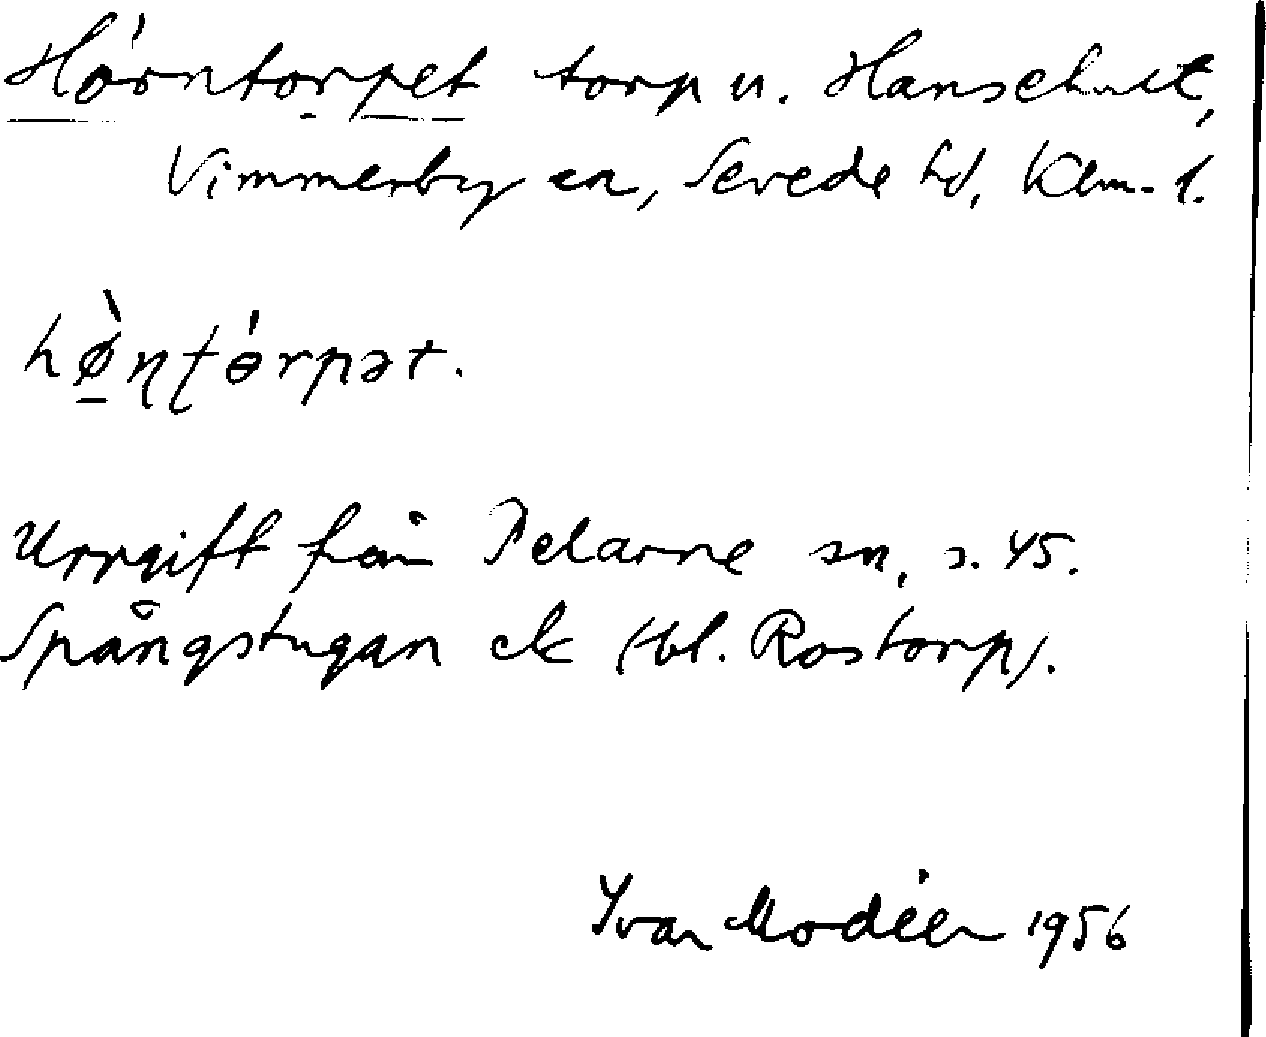 Hörntorpet torp u. Hanshult,
Vimmerby sn, Sevede hd, Klm. l.
hø̀ɳʈɵ́rpət.
Uppgift från Pelarne sn, s. 45.
Spångstugan ek (bl. Rostorp).
Ivar Modéer 1956